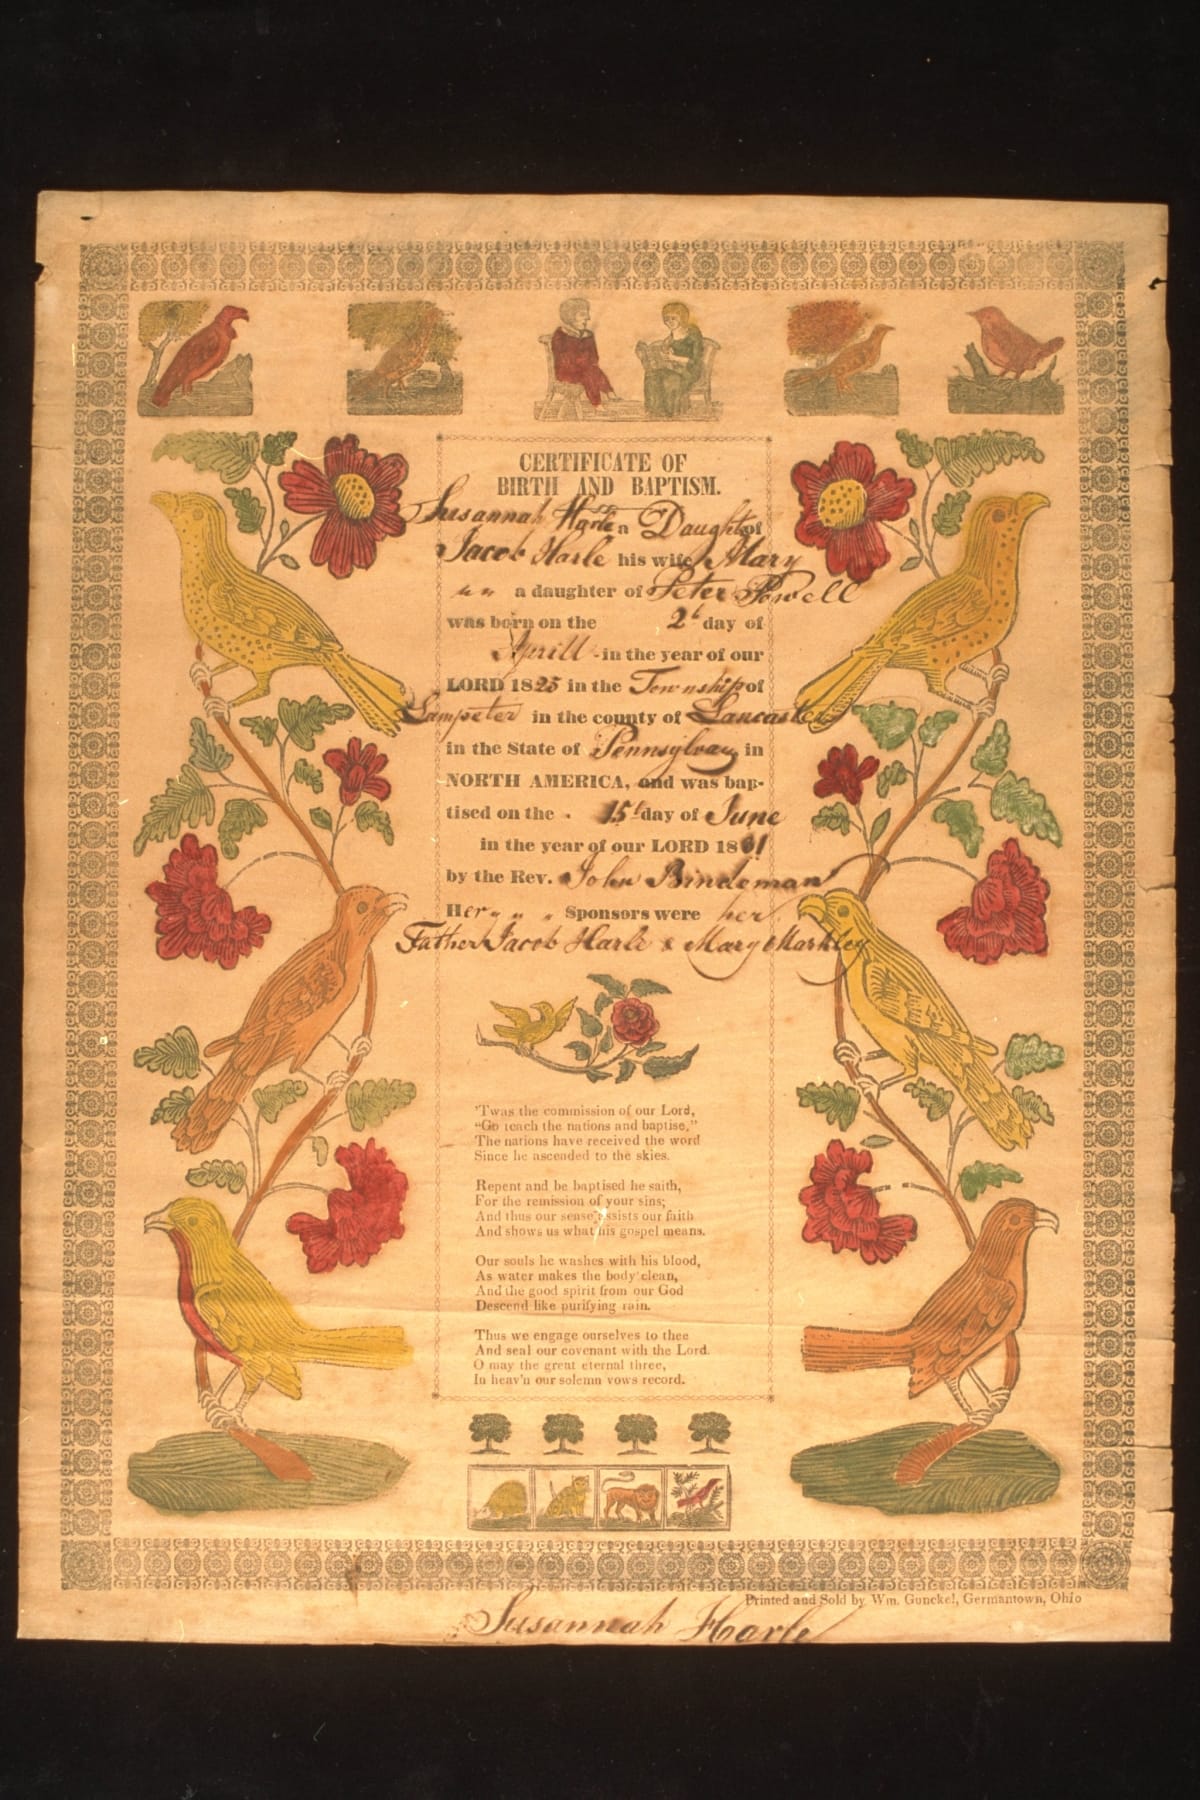 CERTIFICATE OF
BIRTH AND BAPTISM.
Susannah Harle a Daught of
Jacob Harle his wife Mary
" " a daughter of Peter Powell
was born on the 2d day of
Aprill in the year of our
LORD 1825 in the Township of
Lampeter in the county of Lancaster
in the State of Pennsylvan in
NORTH AMERICA, and was bap-
tised on the 15t day of June
in the year of our LORD 18
by the Rev. John Bindeman
Her " " " Sponsors were her
Father Jacob Harle & Mary Markley
'Twas the commission of our Lord,
"Go teach the nations and baptise,"
The nations have received the word
Since he ascended to the skies.
Repent and be baptised he saith,
For the remission of your sins;
And thus our sense assists our faith
And shows us what his gospel means.
Our souls he washes with his blood,
As water makes the body clean,
And the good spirit from our God
Descend like purifying rain.
Thus we engage ourselves to thee
And seal our covenant with the Lord.
O may the great eternal three,
In heav'n our solemn vows record.
Printed and Sold by Wm. Gunckel, Germantown, Ohio
Susannah Harle